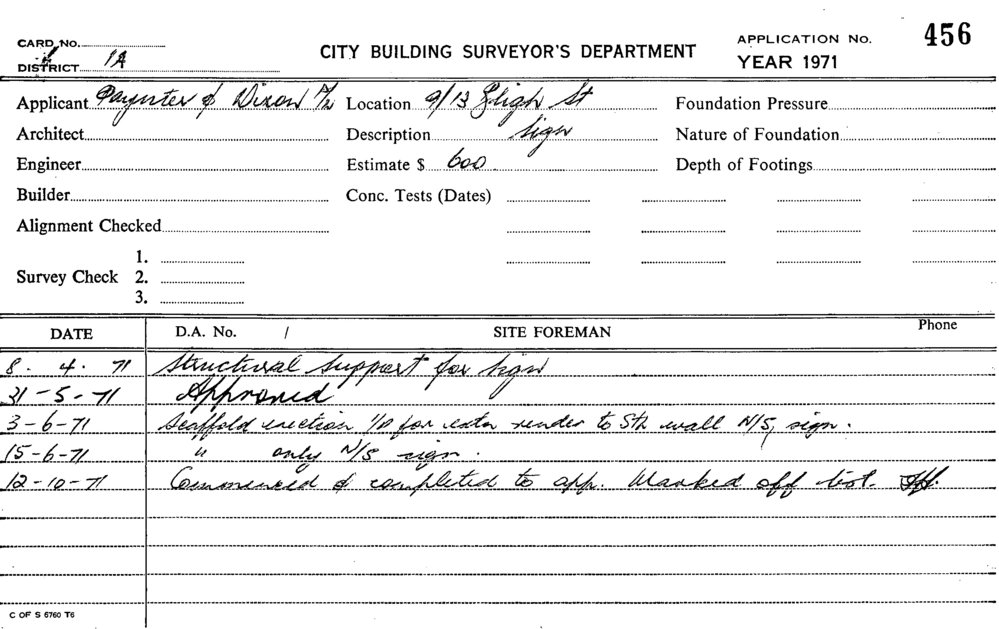 CARD NO.
DISTRICT 1A
CITY BUILDING SURVEYOR'S DEPARTMENT
APPLICATION No. 456
YEAR 1971
Applicant Paynter & Dixon P/L Location 9/13 Bligh St Foundation Pressure
Architect Description Sign Nature of Foundation
Engineer Estimate $ 600 Depth of Footings
Builder Conc. Tests (Dates)
Alignment Checked
Survey Check 1.
2.
3.
DATE D.A. No. / SITE FOREMAN Phone
8. 4. 71 Structural Support for Sign
31-5-71 Approved
3-6-71 Scaffold erection for render to Sth wall N/S, sign.
15-6-71 " only N/S sign.
12-10-71 Commenced & completed to app. Marked off list.
C OF S 6760 T6